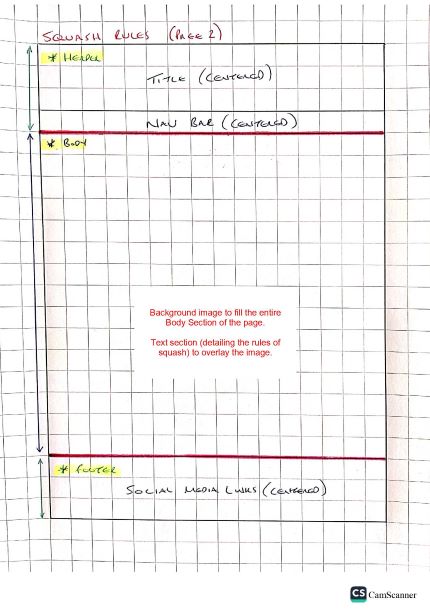 SQUASH RULES (PAGE 2)
* HEADER
TITLE (CENTERED)
NAV BAR (CENTERED)
* BODY
Background image to fill the entire
Body Section of the page.
Text section (detailing the rules of
squash) to overlay the image.
* FOOTER
SOCIAL MEDIA LINKS (CENTERED)
CS CamScanner